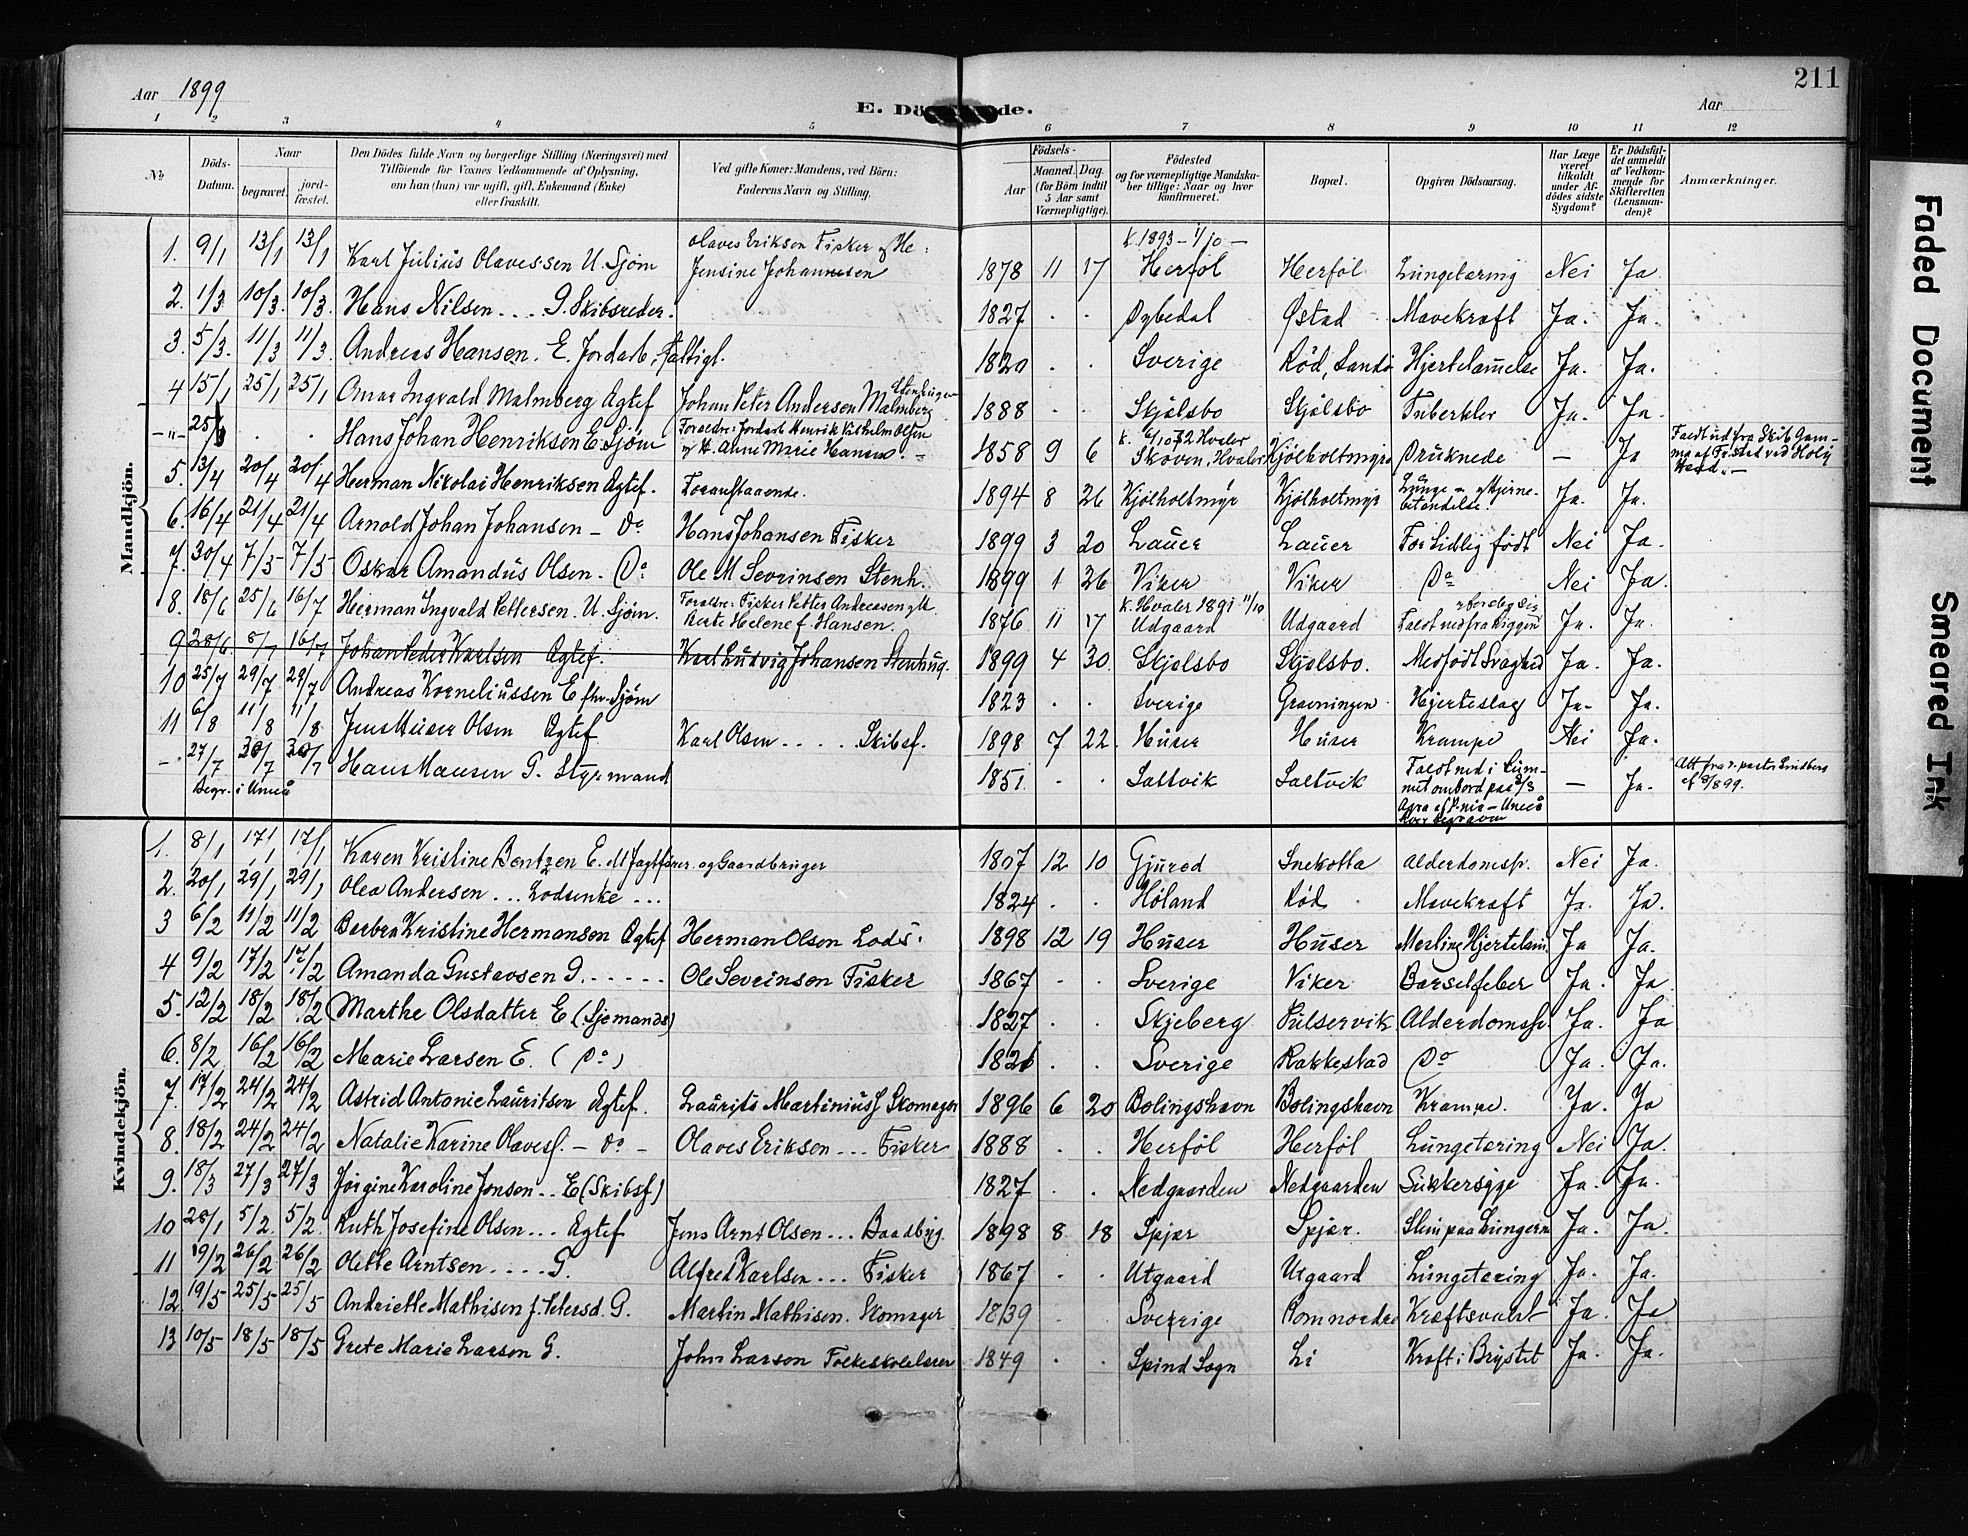 Aar 1899
E. Dö de.
Aar
211
1 2 3 4 5 6 7 8 9 10 11 12
№
Döds-Datum.
Naar
begravet.
jord-fæstet.
Den Dödes fulde Navn og borgerlige Stilling (Næringsvei) med
Tilföiende for Voxnes Vedkommende af Oplysning,
om han (hun) var ugift, gift, Enkemand (Enke)
eller fraskilt.
Ved gifte Koner: Mandens, ved Börn:
Faderens Navn og Stilling.
Födsels-
Aar
Maaned. Dag.
(for Börn indtil
5 Aar samt
Værnepligtige).
Födested
og for værnepligtige Mandska-
ber tillige: Naar og hvor
konfirmeret.
Bopæl.
Opgiven Dödsaarsag.
Har Læge
været
tilkaldt
under Af-
dödes sidste
Sygdom?
Er Dödsfal-
det anmeldt
af Vedkom-
mende for
Skifteretten
(Lensman-
den)?
Anmærkninger.
Mandkjön.
1. 9/1 13/1 13/1 Karl Julius Olavessen U. Sjöm Olaves Eriksen Fisker og He: Jensine Johannesen 1878 11 17 K. 1893 - 1/10 - Herföl Herföl Lungetæring Nei Ja
2. 1/3 10/3. 10/3. Hans Nilsen . . . G. Skibsreder. 1827 . . Dybedal Østad Mavekræft Ja. Ja.
3. 5/3. 11/3 11/3. Andreas Hansen. E. Jordarb. Fattigl. 1820 . . Sverige Röd, Sandö Hjertelamelse Ja. Ja.
4 15/1 25/1 25/1 Omar Ingvald Malmberg Ægtef Johan Peter Andersen Malmberg Stenhugger 1888 . . Skjælsbo Skjælsbo Tuberkler Ja. Ja.
-"- . . Hans Johan Henriksen E. Sjöm Foreldre: Jordarb Henrik Vilhelm Olsen og H. Anne Marie Hansen. 1858 9 6 Skoven, Hvaler Kjölholtmyra Druknede — Ja Faldt ud fra Skib Gamma af Fr.stad ved Holy Head.
5. 13/4 20/4 20/4 Herman Nikolai Henriksen Ægtef. Foranstaaende. 1894 8 26 Kjölholtmyr Kjölholtmyr Lunge- og Hjernebetændelse. Ja. Ja.
6. 16/4 21/4 21/4 Arnold Johan Johansen - Do Hans Johansen Fisker 1899 3 20 Lauer Lauer For tidlig födt Nei Ja.
7. 30/4 7/5 7/5 Oskar Amandus Olsen. Do Ole M Sevrinsen Stenh. 1899 1 26 Viker Viker Do Nei Ja.
8. 18/6 25/6 16/7 Herman Ingvald Pettersen. U. Sjöm. Foreldre: Fisker Petter Andreasen og H. Berte Helene f. Hansen. 1876 11 17 K. Hvaler 1891 11/10 Udgaard Udgaard Faldt ned fra Riggen Ja. Ja.
9 28/6 8/7 16/7 Johan Peder Karlsen Ægtef. Karl Ludvig Johansen Stenhug. 1899 4 30. Skjelsbo Skjelsbo. Medfödt Svaghed Ja. Ja.
10 25/7 29/7 29/7 Andreas Korneliussen E. fhv. Sjöm 1823 . . Sverige Gravningen Hjerteslag Ja- Ja.
11 6/8 11/8 11/8 Jens Huser Olsen Ægtef Karl Olsen . . . . Skibsf. 1898 7 22. Huser Huser Krampe Nei Ja.
-. 27/7 30/7 30/7 Hans Hansen G. Styrmand 1851. . . Saltvik Saltvik Faldt ned i Rummet ombord paa — Ja. Att fra v. pastor Lindberg
Begr. i Umeå
Kvindekjön.
1. 8/1 17/1 17/1 Karen Kristine Bentzen E. af Jagtförer og Gaardbruger 1807 12 10 Gjuröd Snekotta Alderdomssv. Nei Ja.
2. 20/1 29/1 29/1 Olea Andersen ... Lodsenke ... 1824 . . Höland Röd Mavekræft Ja. Ja.
3 6/2 11/2 11/2 Barbra Kristine Hermansen Ægtef Herman Olsen Lods. 1898 12 19 Huser Huser Ja Ja.
4 9/2 17/2 17/2 Amanda Gustavsen G. - - - - - Ole Sevrinsen Fisker 1867 . . Sverige Viker Barselfeber Ja. Ja
5. 12/2 18/2 18/2 Marthe Olsdatter E. (Sjømands) 1827 . . Skjeberg Pulservik Alderdomssv. Ja. Ja
6. 8/2 16/2 16/2 Marie Larsen E. (Do) . . Sverige Rakkestad Do Ja. Ja.
7. 17/2 24/2 24/2 Astrid Antonie Lauritsen Ægtef. Laurits Martinius Skomager 1896 6 20 Bølingshavn Bølingshavn Krampe. Ja. Ja
8. 18/2 24/2 24/2 Natalie Karine Olaves. - Do - Olaves Eriksen ... Fisker 1888 . . Herföl Herföl Lungetæring Nei Ja.
9. 18/3 27/3 27/3 Jörgine Karoline Jensen.. E (Skibsf) 1827 . . Nedgaarden Nedgaarden Sukkersyge Ja. Ja.
10 28/1 5/2. 5/2. Ruth Josefine Olsen... Ægtef Jens Arnt Olsen ... Baadbyg. 1898 8 18 Spjær Spjær. Slim paa Lungerne Ja. Ja.
11 19/2 26/2 26/2 Olette Arntsen . . . . G. Alfred Karlsen ... Fisker 1867 . . Utgaard Utgaard Lungetæring Ja. Ja.
12. 19/5 25/5 25/5 Andriette Mathisen f. Petersd. G. Martin Mathisen. Skomager 1839 . . Sverrige Romnordre Kræftsvulst Ja. Ja
13 10/5 18/5 18/5 Grete Marie Larsen G. John Larson Folkeskolelærer 1849 . . Spind Sogn Li Kræft i Brystet Ja. Ja.
Faded Document
Smeared Ink